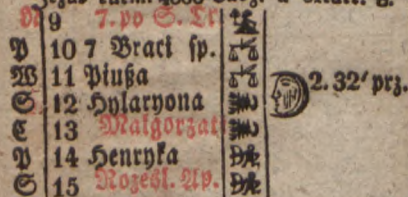 N 9 7. po S. Tr
P 10 7 Braci sp.
W 11 Piußa
S 12 Hylaryona 2. 32' prz.
C 13 Małgorzat
P 14 Henryka
S 15 Rozesl. Ap.